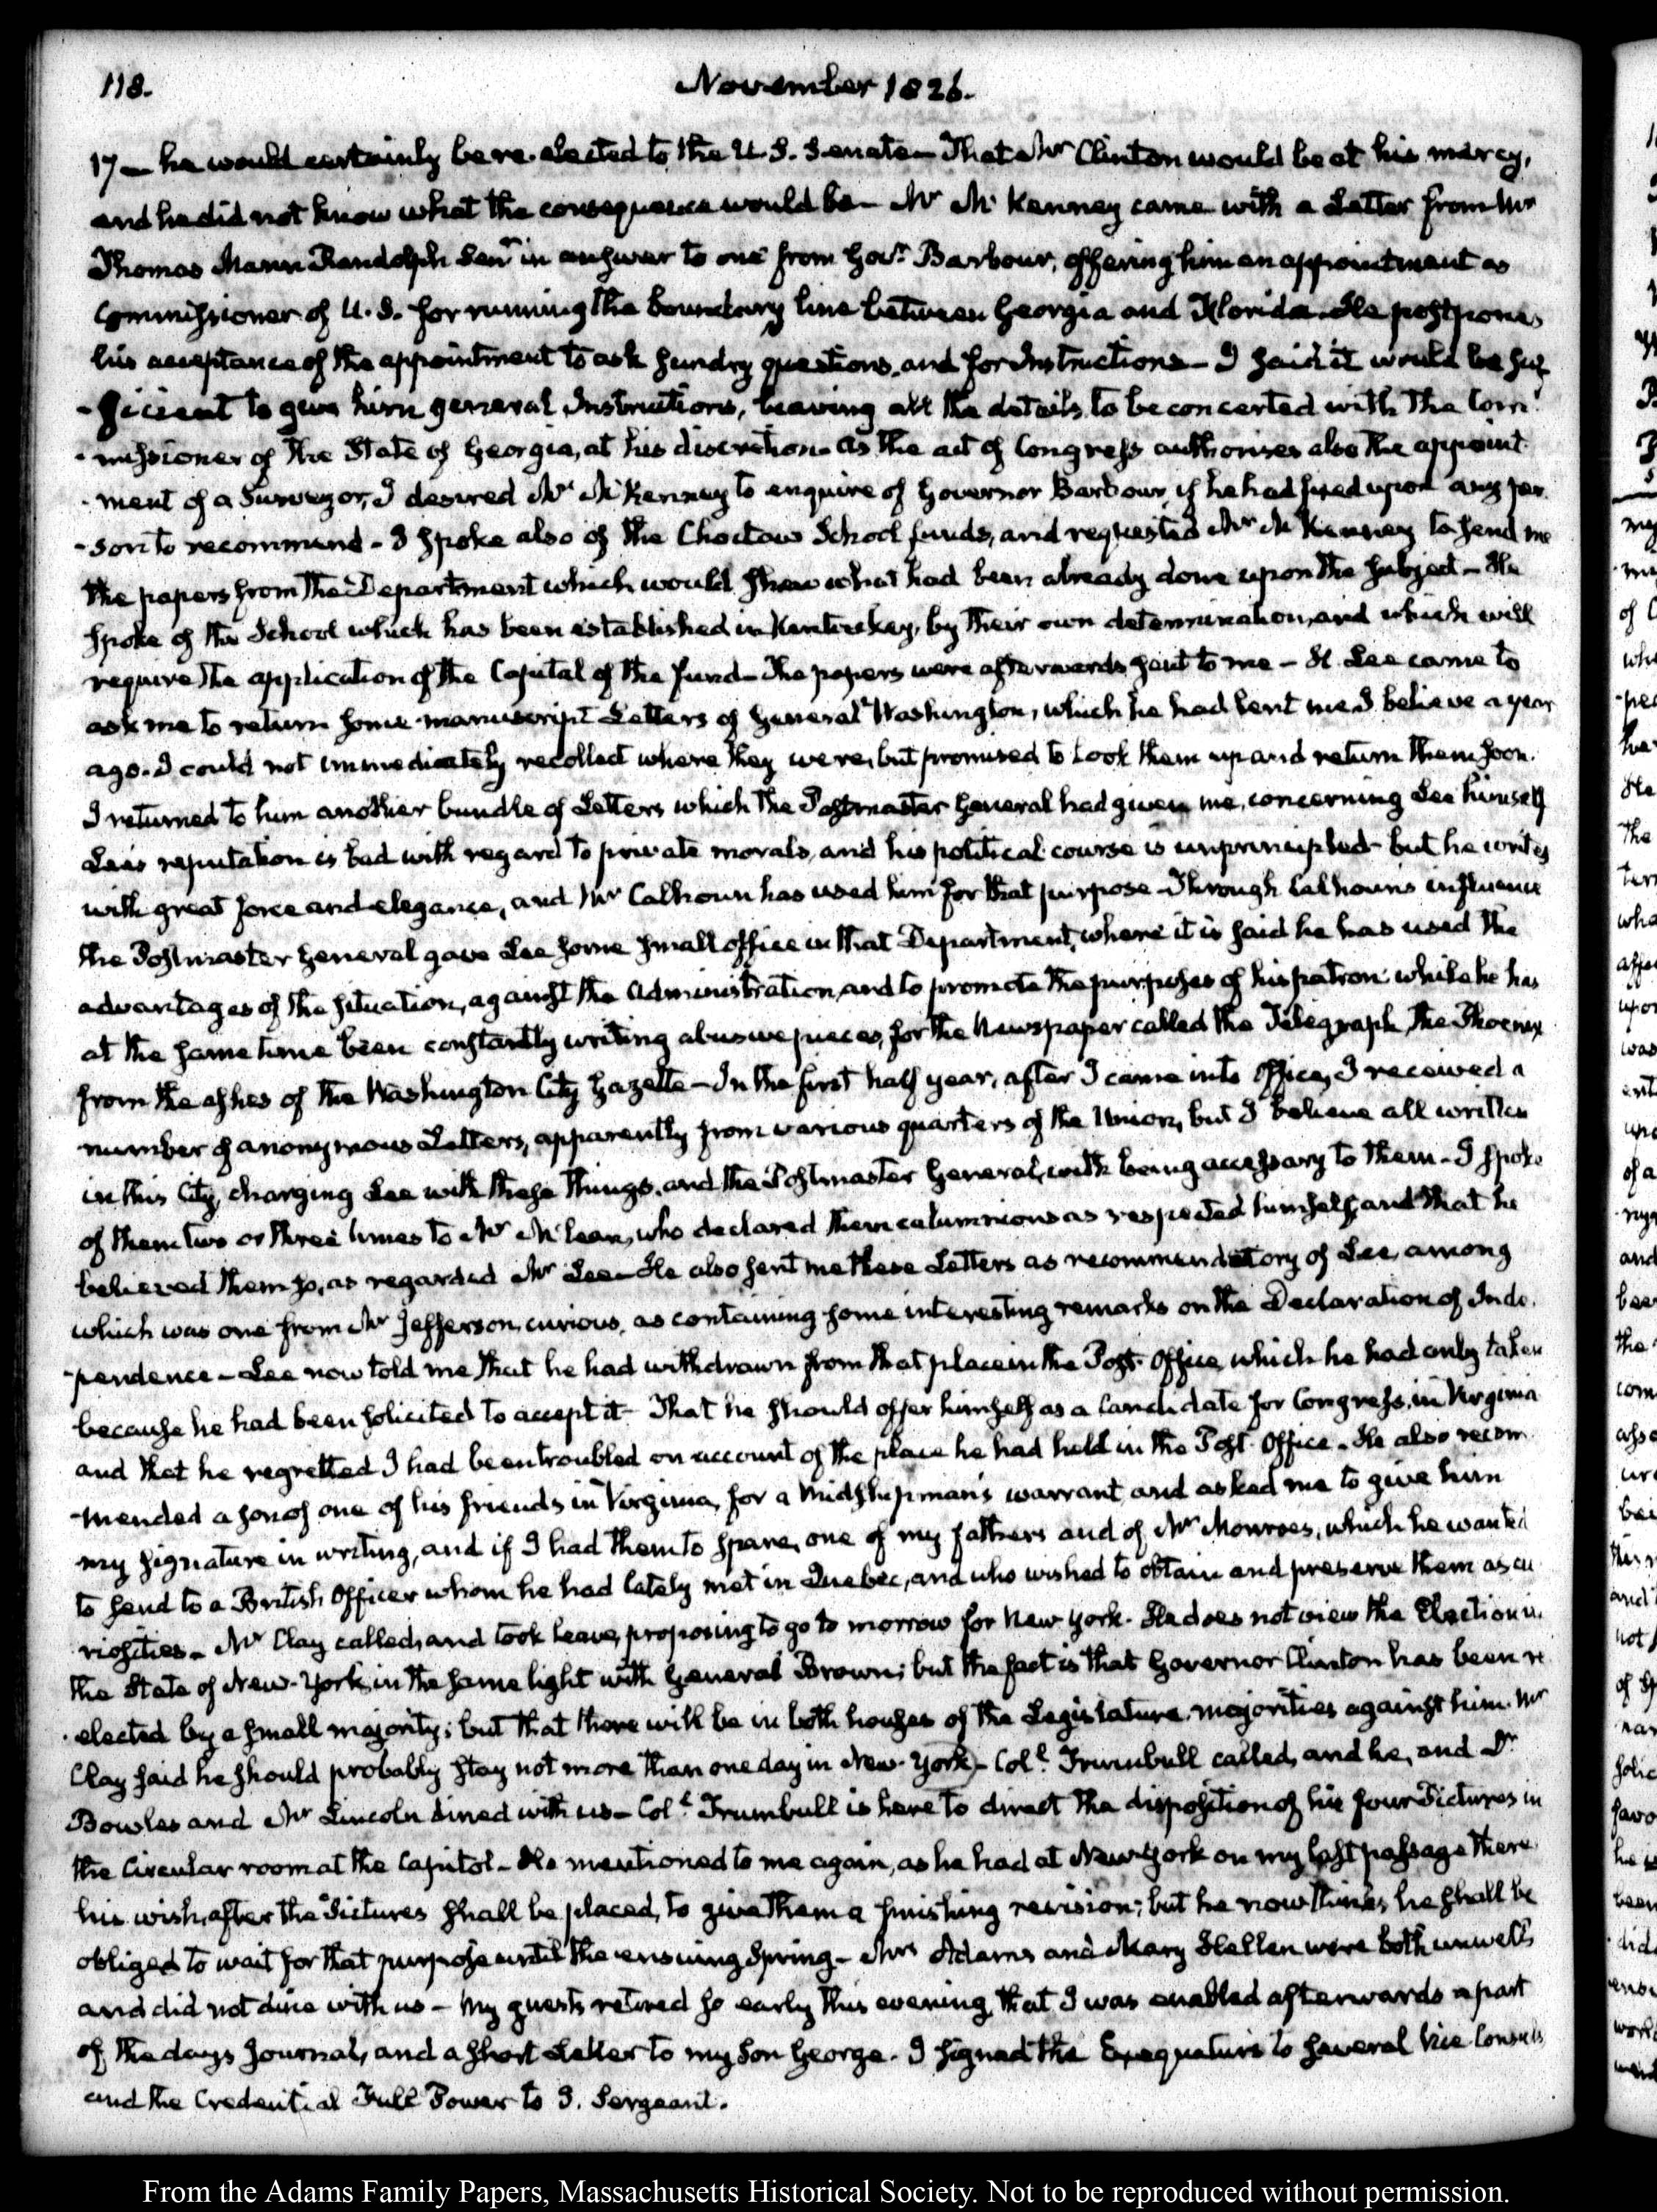 118.
November 1826.
17 — he would certainly be re-elected to the U.S. Senate — That Mr Clinton would be at his mercy,
and he did not know what the consequence would be — Mr McKenney came with a Letter from Mr
Thomas Mann Randolph Senr in answer to one from Govr Barbour, offering him an appointment as
Commissioner of U.S. for running the boundary line between Georgia and Florida. He postpones
his acceptance of the appointment to ask sundry questions, and for Instructions — I said it would be suf
-ficient to give him general Instructions, leaving all the details to be concerted with the Com
-missioner of the State of Georgia, at his discretion — As the act of Congress authorises also the appoint
-ment of a Surveyor, I desired Mr McKenney to enquire of Governor Barbour if he had fixed upon any per
-son to recommend — I spoke also of the Choctaw School funds, and requested Mr McKenney to send me
the papers from the Department which would shew what had been already done upon the subject — He
spoke of the School which has been established in Kentuckey, by their own determination, and which will
require the application of the Capital of the fund — The papers were afterwards sent to me — H. Lee came to
ask me to return some manuscript Letters of General Washington, which he had lent me I believe a year
ago. I could not immediately recollect where they were, but promised to look them up and return them soon.
I returned to him another bundle of Letters which the Postmaster General had given me, concerning Lee himself
Lee's reputation is bad with regard to private morals, and his political course is unprincipled — but he writes
with great force and elegance, and Mr Calhoun has used him for that purpose — Through Calhouns influence
the Postmaster General gave Lee some small office in that Department, where it is said he has used the
advantages of the situation, against the Administration, and to promote the purposes of his patron while he has
at the same time been constantly writing abusive pieces, for the Newspaper called the Telegraph, the Phoenix
from the ashes of the Washington City Gazette — In the first half year, after I came into Office, I received a
number of anonymous Letters, apparently from various quarters of the Union, but I believe all written
in this City, charging Lee with these things, and the Postmaster General, with being accessary to them — I spoke
of them two or three times to Mr McLean, who declared them calumnious as respected himself, and that he
believed them so, as regarded Mr Lee — He also sent me these Letters as recommendatory of Lee, among
which was one from Mr Jefferson, curious, as containing some interesting remarks on the Declaration of Inde
-pendence — Lee now told me that he had withdrawn from that place in the Post-Office, which he had only taken
because he had been solicited to accept it — That he should offer himself as a Candidate for Congress, in Virginia
and that he regretted I had been troubled on account of the place he had held in the Post-Office. He also recom
-mended a son of one of his friends in Virginia, for a Midshipman's warrant, and asked me to give him
my signature in writing, and if I had them to spare, one of my fathers and of Mr Monroes, which he wanted
to send to a British Officer whom he had lately met in Quebec, and who wished to obtain and preserve them as cu
-riosities — Mr Clay called, and took leave, proposing to go to morrow for New York. He does not view the Election in
the State of New-York, in the same light with General Brown; but the fact is that Governor Clinton has been re
-elected by a small majority; but that there will be in both houses of the Legislature, majorities against him. Mr
Clay said he should probably stay not more than one day in New-York — Coll Trumbull called, and he, and Dr
Bowles and Mr Lincoln dined with us — Coll Trumbull is here to direct the disposition of his four Pictures in
the Circular room at the Capitol — He mentioned to me again, as he had at New-York on my last passage there
his wish, after the Pictures shall be placed, to give them a finishing revision; but he now thinks he shall be
obliged to wait for that purpose until the ensuing Spring — Mrs Adams and Mary Hellen were both unwell
and did not dine with us — My guests retired so early this evening, that I was enabled afterwards a part
of the days Journal, and a short Letter to my Son George. I signed the Exequaturs to several Vice Consuls
and the Credential Full Power to J. Sergeant.
From the Adams Family Papers, Massachusetts Historical Society. Not to be reproduced without permission.